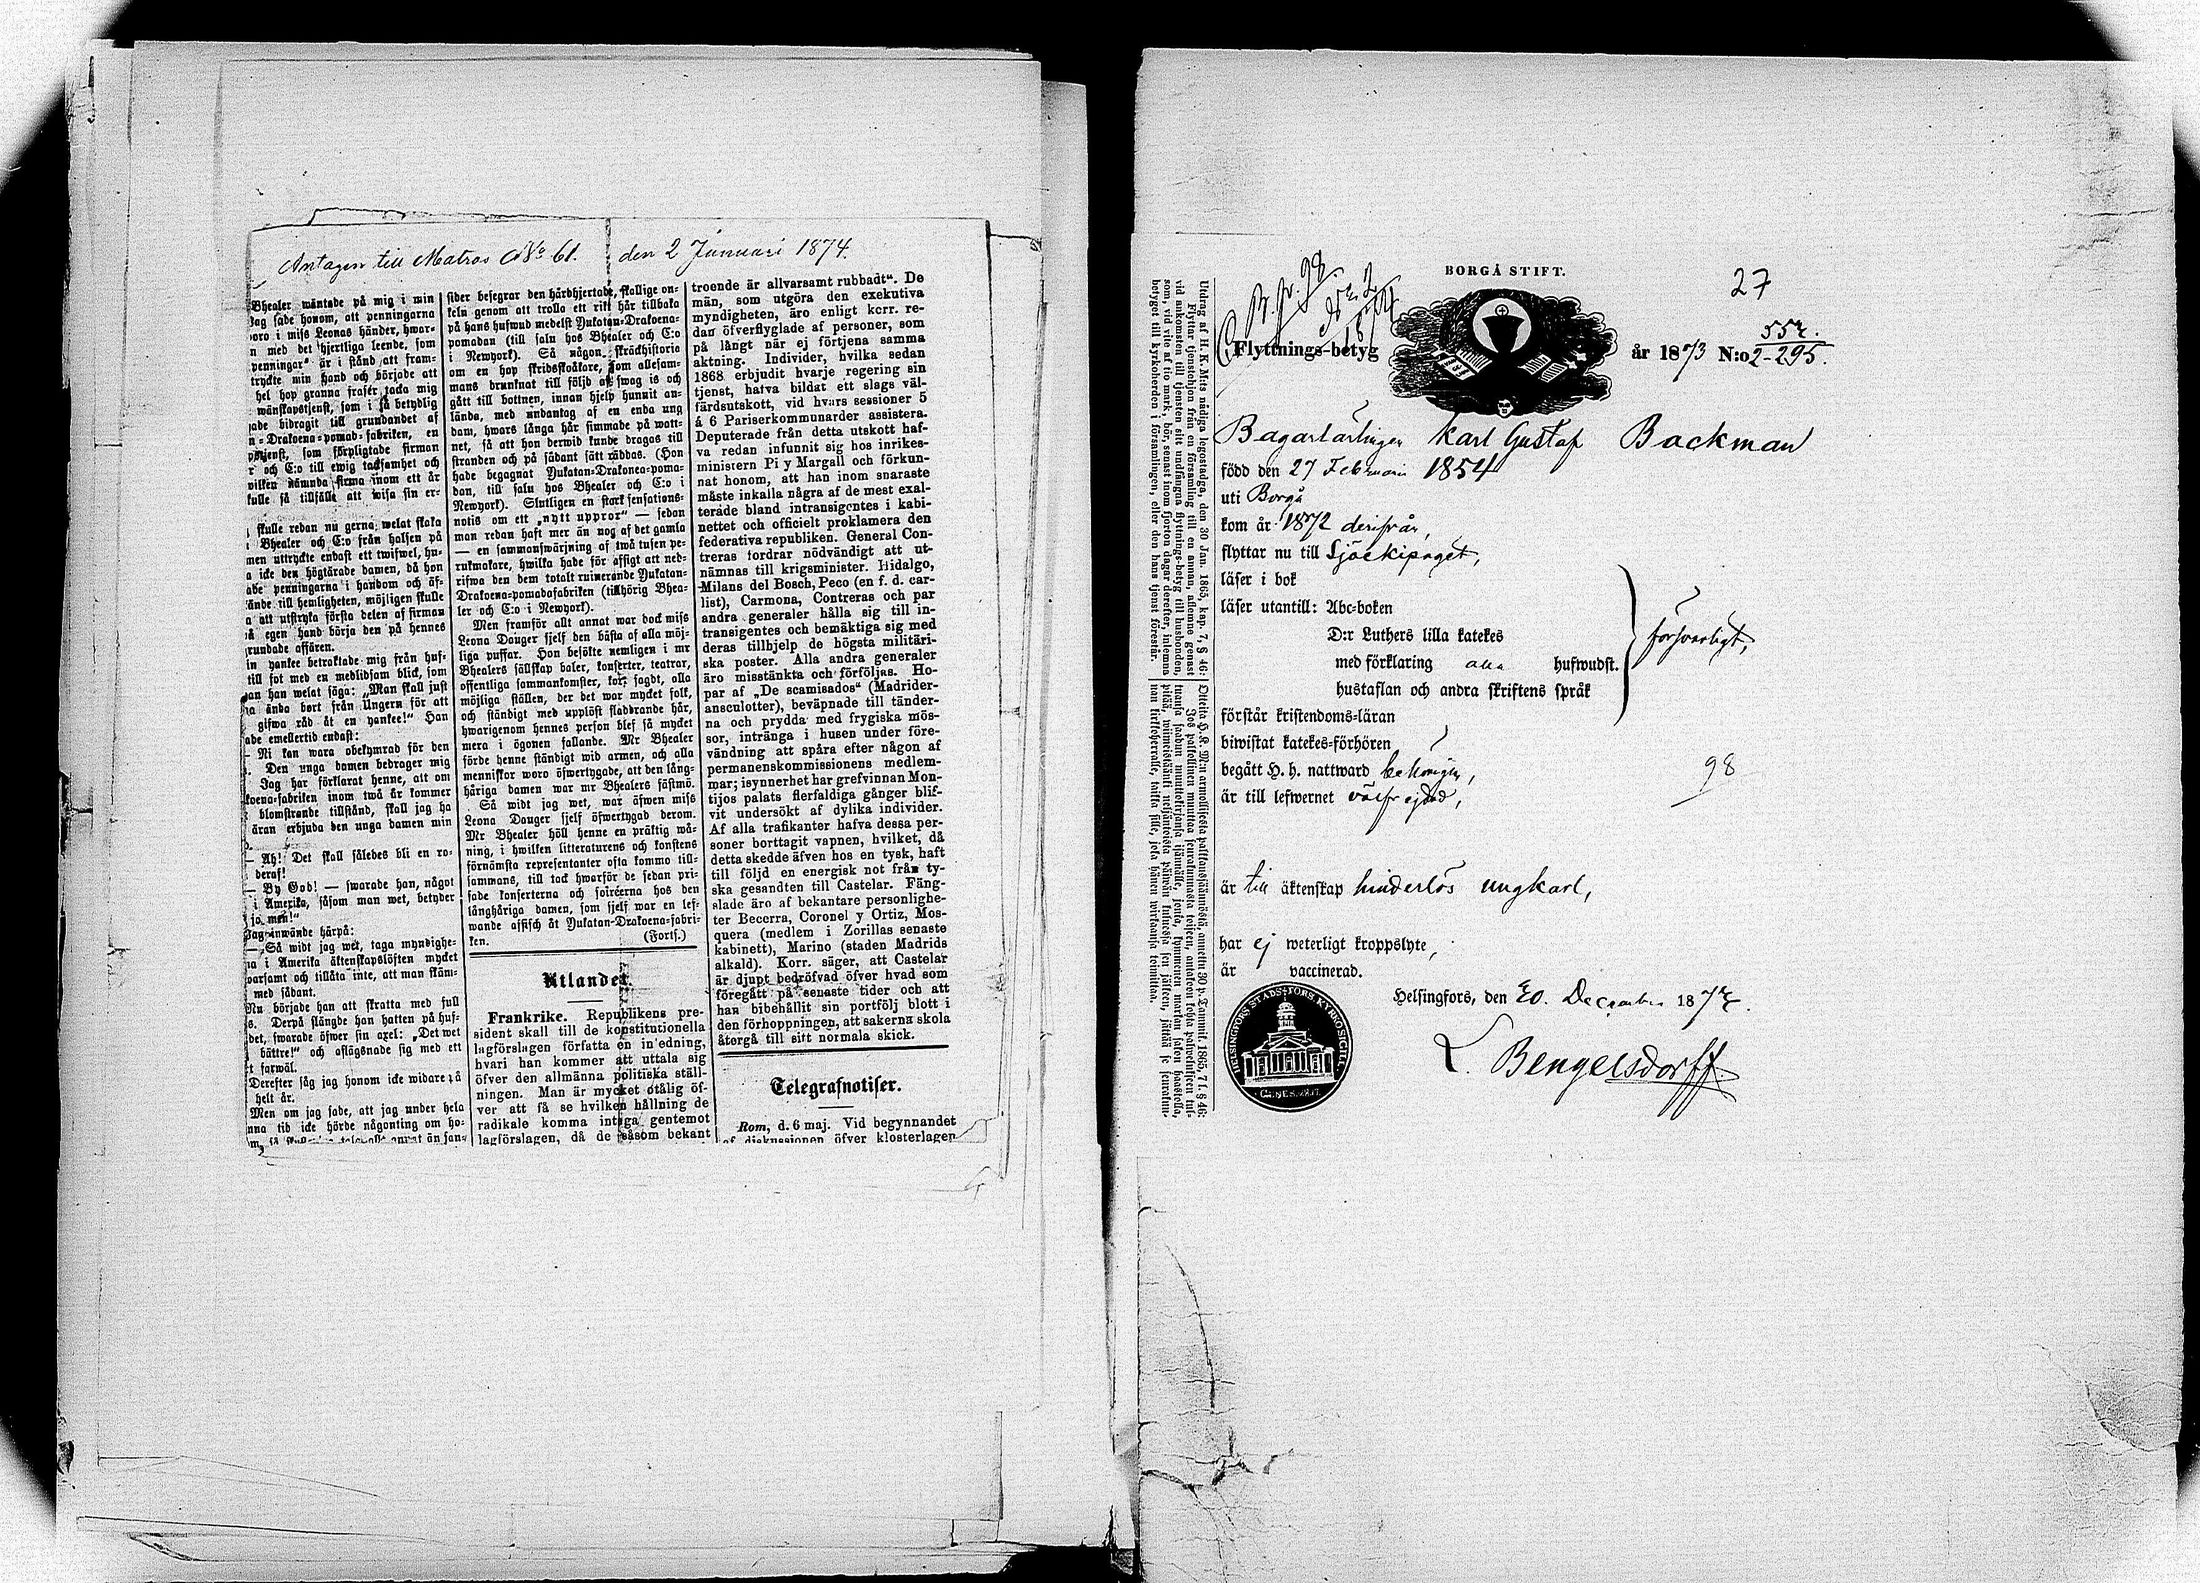 Antagen till Matros No 61. den 2 Januari 1874.
Bhealer wäntade på mig i min
Jag sade honom, att penningarna
woro i miss Leonas händer, hwar-
n med det hjertliga leende, som
penningar" är i stånd att fram-
tryckte min hand och började att
hel hop granna fraser tacka mig
wänskapstjenst, som i så betydlig
ade bidragit till grundandet af
n-Drakoena-pomad-fabriken, en
tjenst, som förpligtade firman
r och C:o till ewig tacksamhet och
wilken nämnda firma inom ett år
kulle få tillfälle att wisa sin er-
skulle redan nu gerna welat skaka
Bhealer och C:o från halsen på
men uttryckte endast ett twifwel, hu-
a icke den högtärade damen, då hon
ade penningarna i handom och öf-
ände till hemligheten, möjligen skulle
a att utstryka första delen af firman
å egen hand börja den på hennes
grundade affären.
in yankee betraktade mig från huf-
till fot med en medlidsam blick, som
an han welat säga: „Man skall just
a ända bort från Ungern för att
gifwa råd åt en yankee!" Han
ade emellertid endast:
— Ni kan wara obekymrad för den
. Den unga damen bedrager mig
Jag har förklarat henne, att om
koena-fabriken inom två år kommer
blomstrande tillstånd, skall jag ha
äran erbjuda den unga damen min
— Ah! Det skall således bli en ro-
deraf!
— By God! — swarade han, något
i Amerika, såsom man wet, betyder
jo, men!"
Jag inwände härpå:
— Så widt jag wet, taga myndighe-
na i Amerika äktenskapslöften mycket
warsamt och tillåta inte, att man skäm-
med sådant.
Nu började han att skratta med full
s. Derpå slängde han hatten på huf-
det, swarade öfwer sin axel: „Det wet
bättre!" och aflägsnade sig med ett
t farwäl.
Derefter såg jag honom icke widare på
helt år.
Men om jag sade, att jag under hela
nna tid icke hörde någonting om ho-
sider besegrar den hårdhjertade, skallige on-
keln genom att trolla ett rikt hår tillbaka
på hans hufwud medelst Yukatan-Drakoena-
pomadan (till salu hos Bhealer och C:o
i Newyork). Så någon skräckhistoria
om en hop skridskoåkare, som allesam-
mans drunknat till följd af swag is och
gått till bottnen, innan hjelp hunnit an-
lända, med undantag af en enda ung
dam, hwars långa hår simmade på watt-
net, så att hon derwid kunde dragas till
stranden och på sådant sätt räddas. (Hon
hade begagnat Yukatan-Drakonea-poma-
dan, till salu hos Bhealer och C:o i
Newyork). Slutligen en stark sensations-
notis om ett „nytt uppror" — sedan
man redan haft mer än nog af det gamla
— en sammanswärjning af twå tusen pe-
rukmakare, hwilka hade för afsigt att ned-
rifwa den dem totalt ruinerande Yukatan-
Drakoena-pomadafabriken (tillhörig Bhea-
ler och C:o i Newyork).
Men framför allt annat war dock miss
Leona Dauger sjelf den bästa af alla möj-
liga puffar. Hon besökte nemligen i mr
Bhealers sällskap baler, konserter, teatrar,
offentliga sammankomster, kort sagdt, alla
möjliga ställen, der det war mycket folk,
och ständigt med upplöst fladdrande hår,
hwarigenom hennes person blef så mycket
mera i ögonen fallande. Mr Bhealer
förde henne ständigt wid armen, och alla
menniskor woro öfwertygade, att den lång-
håriga damen war mr Bhealers fästmö.
Så widt jag wet, war äfwen miss
Leona Dauger sjelf öfwertygad derom.
Mr Bhealer höll henne en präktig wå-
ning, i hwilken litteraturens och konstens
förnämsta representanter ofta kommo till-
sammans, till tack hwarför de sedan pri-
sade konserterna och soiréerna hos den
långhåriga damen, som sjelf war en lef-
wande affisch åt Yukatan-Drakoena-fabri-
ken. (Forts.)
Utlandet.
Frankrike. Republikens pre-
sident skall till de konstitutionella
lagförslagen författa en inledning,
hvari han kommer att uttala sig
öfver den allmänna politiska ställ-
ningen. Man är mycket otålig öf-
ver att få se hvilken hållning de
radikale komma intaga gentemot
lagförslagen, då de såsom bekant
troende är allvarsamt rubbadt". De
män, som utgöra den exekutiva
myndigheten, äro enligt korr. re-
dan öfverflyglade af personer, som
på långt när ej förtjena samma
aktning. Individer, hvilka sedan
1868 erbjudit hvarje regering sin
tjenst, hafva bildat ett slags väl-
färdsutskott, vid hvars sessioner 5
à 6 Pariserkommunarder assistera.
Deputerade från detta utskott haf-
va redan infunnit sig hos inrikes-
ministern Pi y Margall och förkun-
nat honom, att han inom snaraste
måste inkalla några af de mest exal-
terade bland intransigentes i kabi-
nettet och officielt proklamera den
federativa republiken. General Con-
treras fordrar nödvändigt att ut-
nämnas till krigsminister. Hidalgo,
Milans del Bosch, Peco (en f. d. car-
list), Carmona, Contreras och par
andra generaler hålla sig till in-
transigentes och bemäktiga sig med
deras tillhjelp de högsta militäri-
ska poster. Alla andra generaler
äro misstänkta och förföljas. Ho-
par af „De scamisados" (Madrider-
ansculotter), beväpnade till tänder-
na och prydda med frygiska mös-
sor, intränga i husen under före-
vändning att spåra efter någon af
permanenskommissionens medlem-
mar; isynnerhet har grefvinnan Mon-
tijos palats flerfaldiga gånger blif-
vit undersökt af dylika individer.
Af alla trafikanter hafva dessa per-
soner borttagit vapnen, hvilket, då
detta skedde äfven hos en tysk, haft
till följd en energisk not från ty-
ska gesandten till Castelar. Fäng-
slade äro af bekantare personlighe-
ter Becerra, Coronel y Ortiz, Mos-
quera (medlem i Zorillas senaste
kabinett), Marino (staden Madrids
alkald). Korr. säger, att Castelar
är djupt bedröfvad öfver hvad som
föregått på senaste tider och att
han bibehållit sin portfölj blott i
den förhoppningen, att sakerna skola
återgå till sitt normala skick.
Telegrafnotiser.
Rom, d. 6 maj. Vid begynnandet
af diskussionen öfver klosterlagen
BORGÅ STIFT.
27
Flyttnings-betyg år 1873 N:o 2-295.
Bagarlärlingen Karl Gustaf Backman
född den 27 Februari 1854
uti Borgå
kom år 1872 derifrån,
flyttar nu till Sjöekipaget,
läser i bok
läser utantill: Abc-boken
D:r Luthers lilla katekes
med förklaring alla hufwudst.
hustaflan och andra skriftens språk
försvarligt,
förstår kristendoms-läran
biwistat katekes-förhören
begått H. h. nattward behörigen,
98
är till lefwernet välfrejdad,
är till äktenskap hinderlös ungkarl,
har ej weterligt kroppslyte,
är vaccinerad.
Helsingfors, den 20. December 187
L. Bengelsdorff
HELSINGFORS STADS FÖRS. KYRKOSIGILL
Utdrag af H. K. Mits nådiga legostadga, den 30 Jan. 1865, kap. 7, § 46:
Flyttar tjenstehjon från en församling till en annan, aflemne genast
vid ankomsten till tjensten sitt undfångna flyttnings-betyg till husbonden,
som, vid vite af tio mark, bör, senast inom fjorton dagar derefter, inlemna
betyget till kyrkoherden i församlingen, eller den hans tjenst förestår.